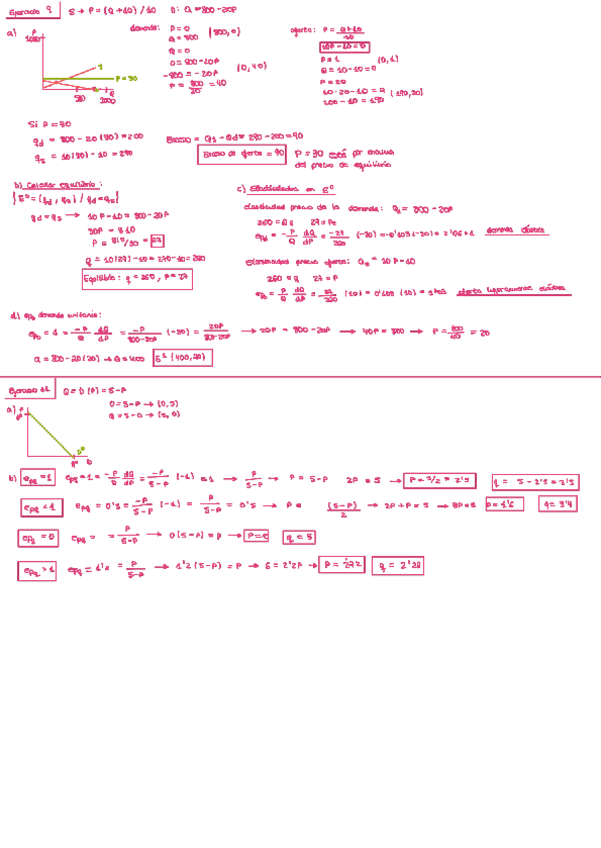 Ejercicio 9 S → P = (Q + 10) / 10 D: Q = 800 - 20P
a) P
demanda: P = 0
Q = 800 (800, 0)
Q = 0
0 = 800 - 20P (0, 40)
-800 = -20P
P = 800/20 = 40
oferta: P = Q+10/10
10P - 10 = Q
P = 1 (0, 1)
Q = 10 - 10 = 0
P = 20
10·20 - 10 = Q (190, 20)
200 - 10 = 190
S
P = 30
Q
Si P = 30
qd = 800 - 20(30) = 200
qs = 10(30) - 10 = 290
Exceso = Qs - Qd = 290 - 200 = 90
Exceso de oferta = 90
P = 30 está por encima del precio de equilibrio
b) Calcular equilibrio:
qd = qs → 10P - 10 = 800 - 20P
30P = 810
P = 810/30 = 27
Q = 10(27) - 10 = 270 - 10 = 260
Equilibrio: q = 260, P = 27
c) Elasticidades en E⁰
elasticidad precio de la demanda: Qd = 800 - 20P
260 = Q 27 = P
= -P/Q dQ/dP = -27/260 (-20) = -0'103 (-20) = 2'06 > 1 demanda elástica
elasticidad precio oferta: Qs = 10P - 10
260 = q 27 = P
= P/Q dQ/dP = 27/260 (10) = 0'103 (10) = 1'03 oferta ligeramente elástica
d) demanda unitaria:
= 1 = -P/Q dQ/dP = -P/800-20P (-20) = 20P/800-20P → 20P = 800 - 20P → 40P = 800 → P = 800/40 = 20
Q = 800 - 20(20) → Q = 400 E¹ (400, 20)
Q = D(P) = 5 - P
a) P
0 = 5 - P → (0, 5)
q = 5 - 0 → (5, 0)
b) = 1 = 1 = -P/Q dQ/dP = -P/5-P (-1) = 1 → P/5-P → P = 5 - P 2P = 5 → P = 5/2 = 2'5 q = 5 - 2'5 = 2'5
< 1 = 0'5 = -P/5-P (-1) = P/5-P = 0'5 → P = (5-P)/2 → 2P + P = 5 → 3P = 5 P = 1'6 q = 3'4
= 0 = P/5-P → 0(5-P) = P → P = 0 q = 5
> 1 = 1'2 = P/5-P → 1'2(5-P) = P → 6 = 2'2P → P = 2'72 q = 2'28